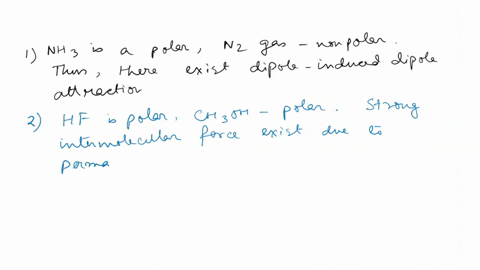 1) NH3 is a polar, N2 gas - nonpolar.
Thus, there exist dipole-induced dipole
attraction
2) HF is polar, CH3OH - polar. Strong
intermolecular force exist due to
perma